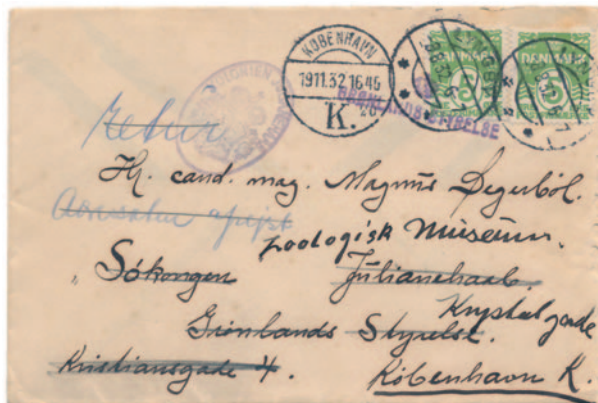 KØBENHAVN
19.11.32.1645
K.
DANMARK
DANMARK
GRØNLANDS STYRELSE
KOLONIEN JULIANEHAAB
Retur
Hr. cand. mag. Magnus Degerböl.
Adressaten afrejst
Zoologisk Museum.
"Sökongen Julianehaab.
Krystalgade
Grönlands Styrelse.
Kristiansgade 4. København K.